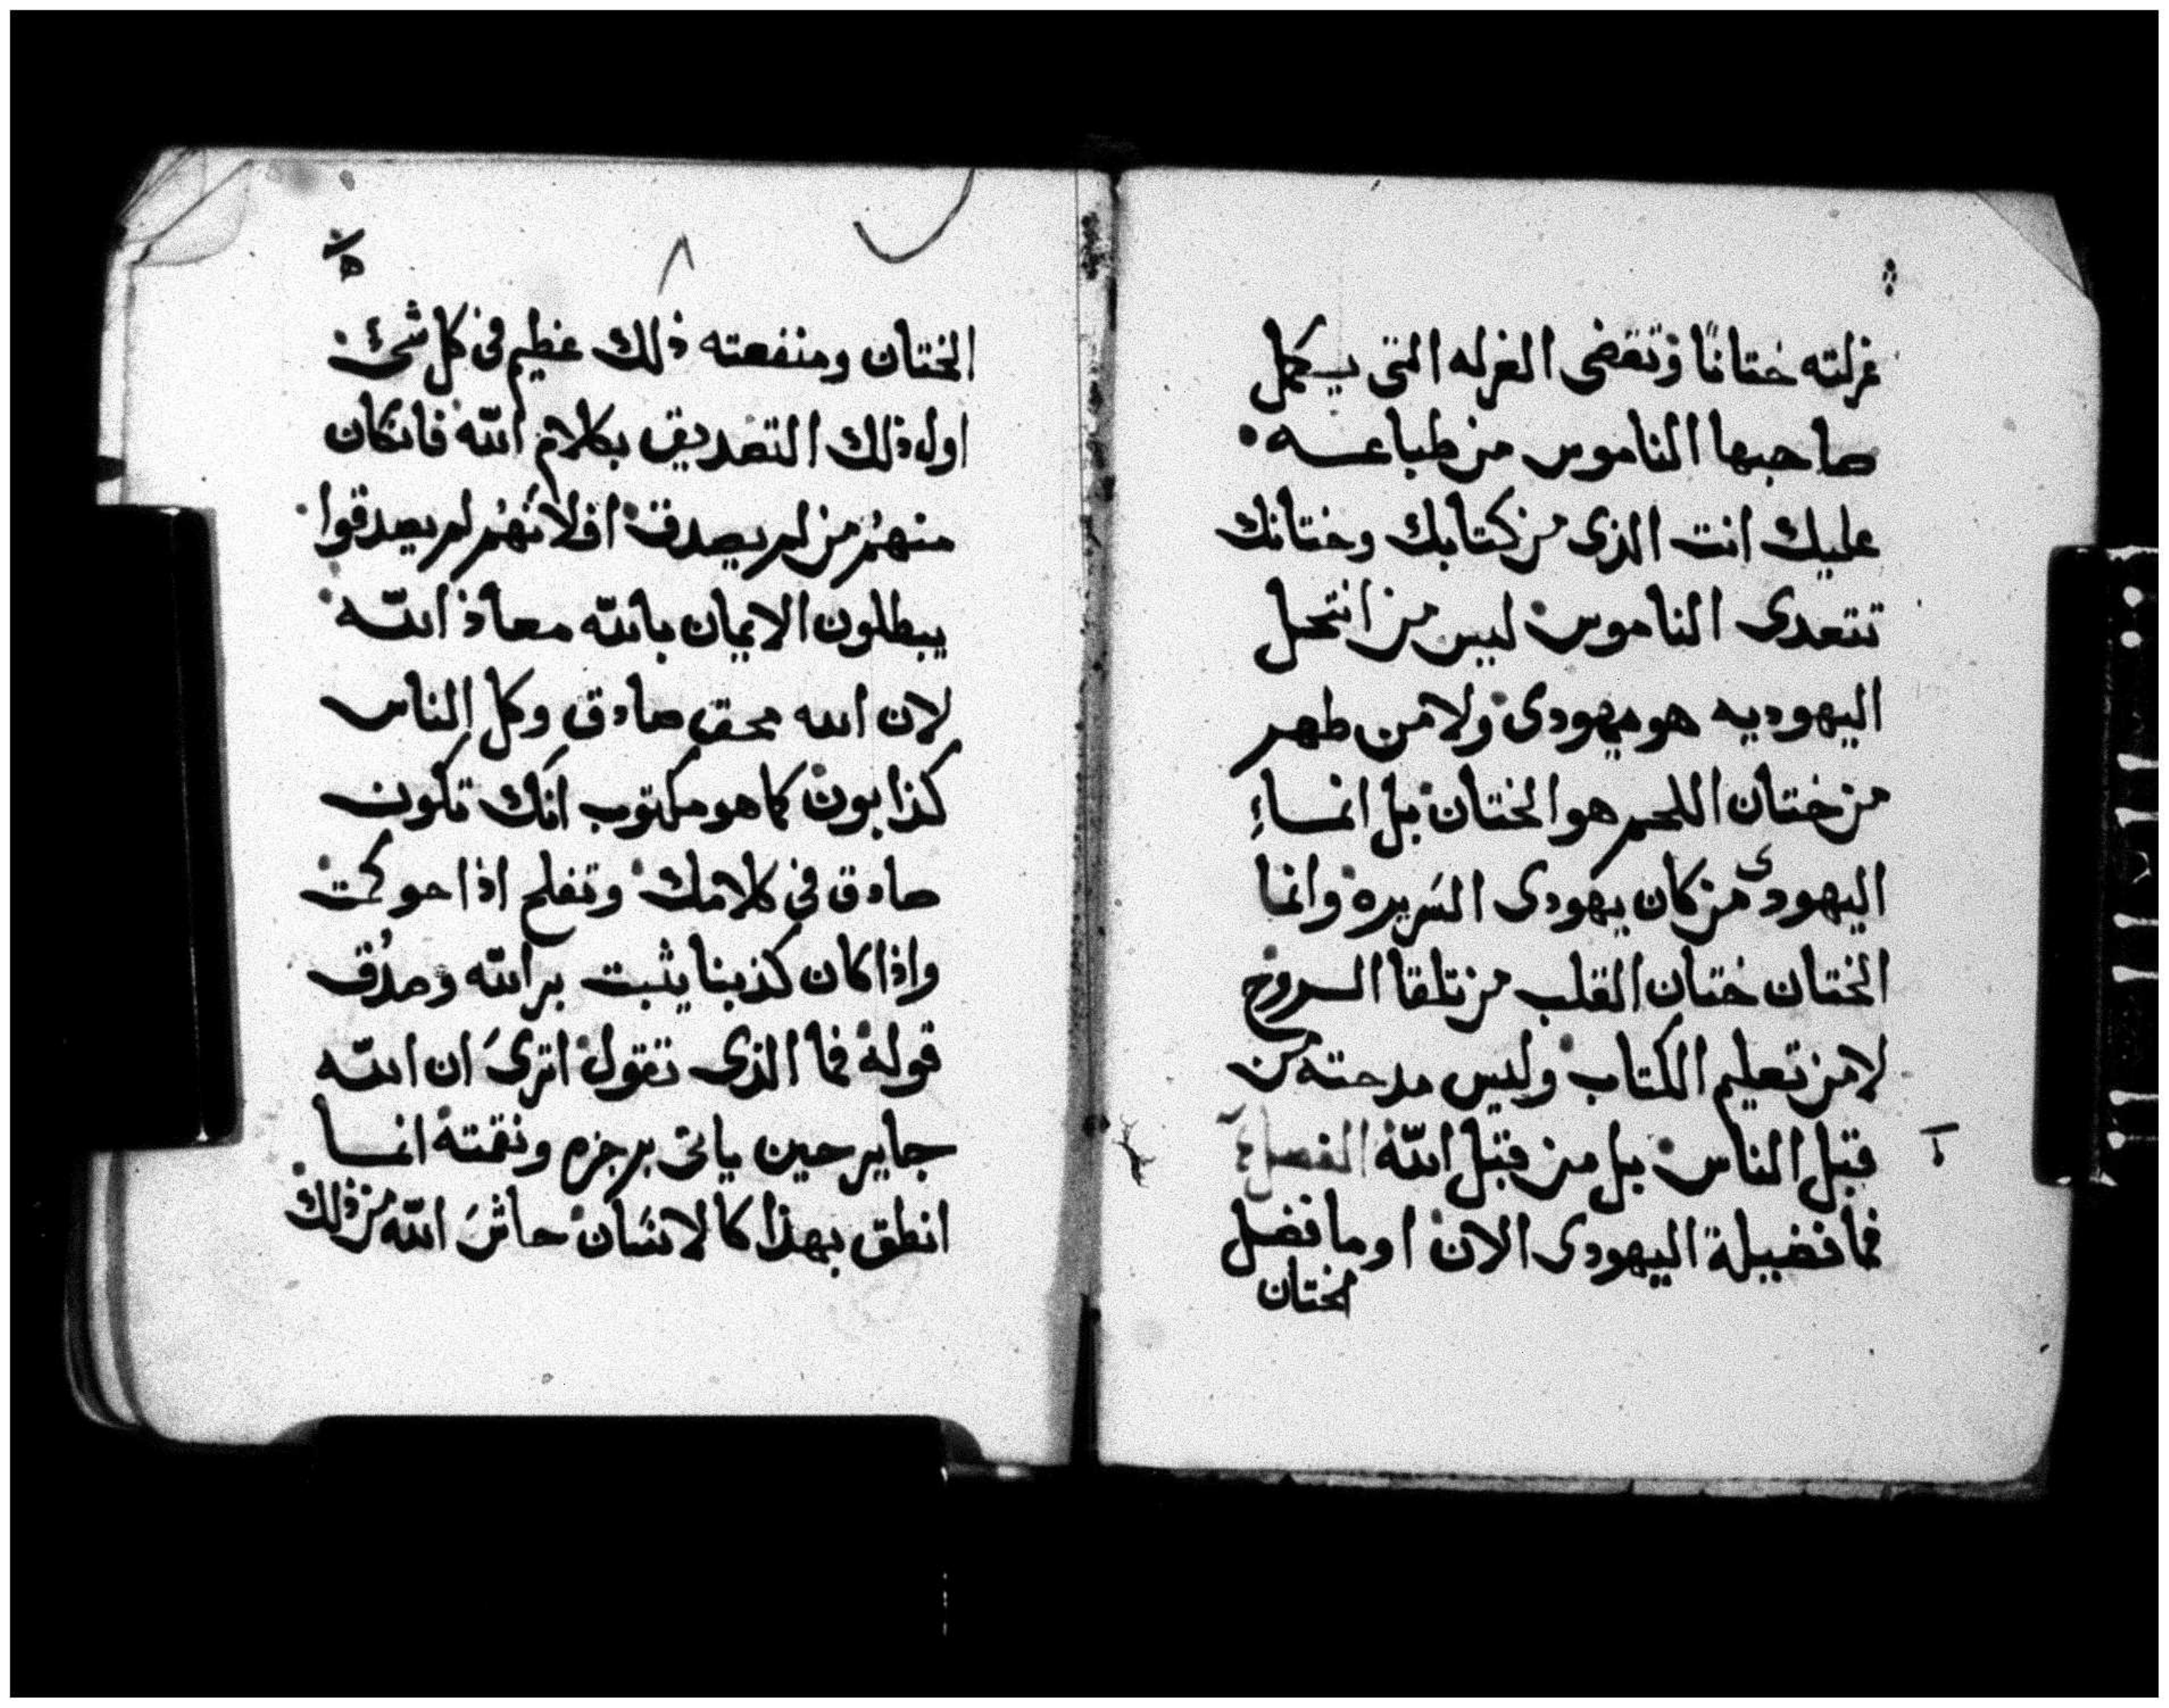 غرلته ختانا وتقضى الغرله التى يكمل
صاحبها الناموس من طباعه
عليك انت الذى من كتابك وختانك
تتعدى الناموس ليس من انتحل
اليهوديه هو يهودى ولا من طهر
من ختان اللحم هو الختان بل انما
اليهودى من كان يهودى السريره وانما
الختان ختان القلب من تلقا الروح
لا من تعليم الكتاب وليس مدحته من
قبل الناس بل من قبل الله الفصل
فما فضيلة اليهودى الان او ما فضل
الختان
الختان ومنفعته ذلك عظيم فى كل شئ
اول ذلك التصديق بكلام الله فان كان
منهم من لم يصدق افلانهم لم يصدقوا
يبطلون الايمان بالله معاذ الله
لان الله محق صادق وكل الناس
كذابون كما هو مكتوب انك تكون
صادق فى كلامك وتفلح اذا حوكمت
واذا كان كذبنا يثبت بر الله وصدق
قوله فما الذى نقول اترى ان الله
جاير حين ياتى برجزه ونقمته انما
انطق بهذا كالانسان حاش الله من ذلك